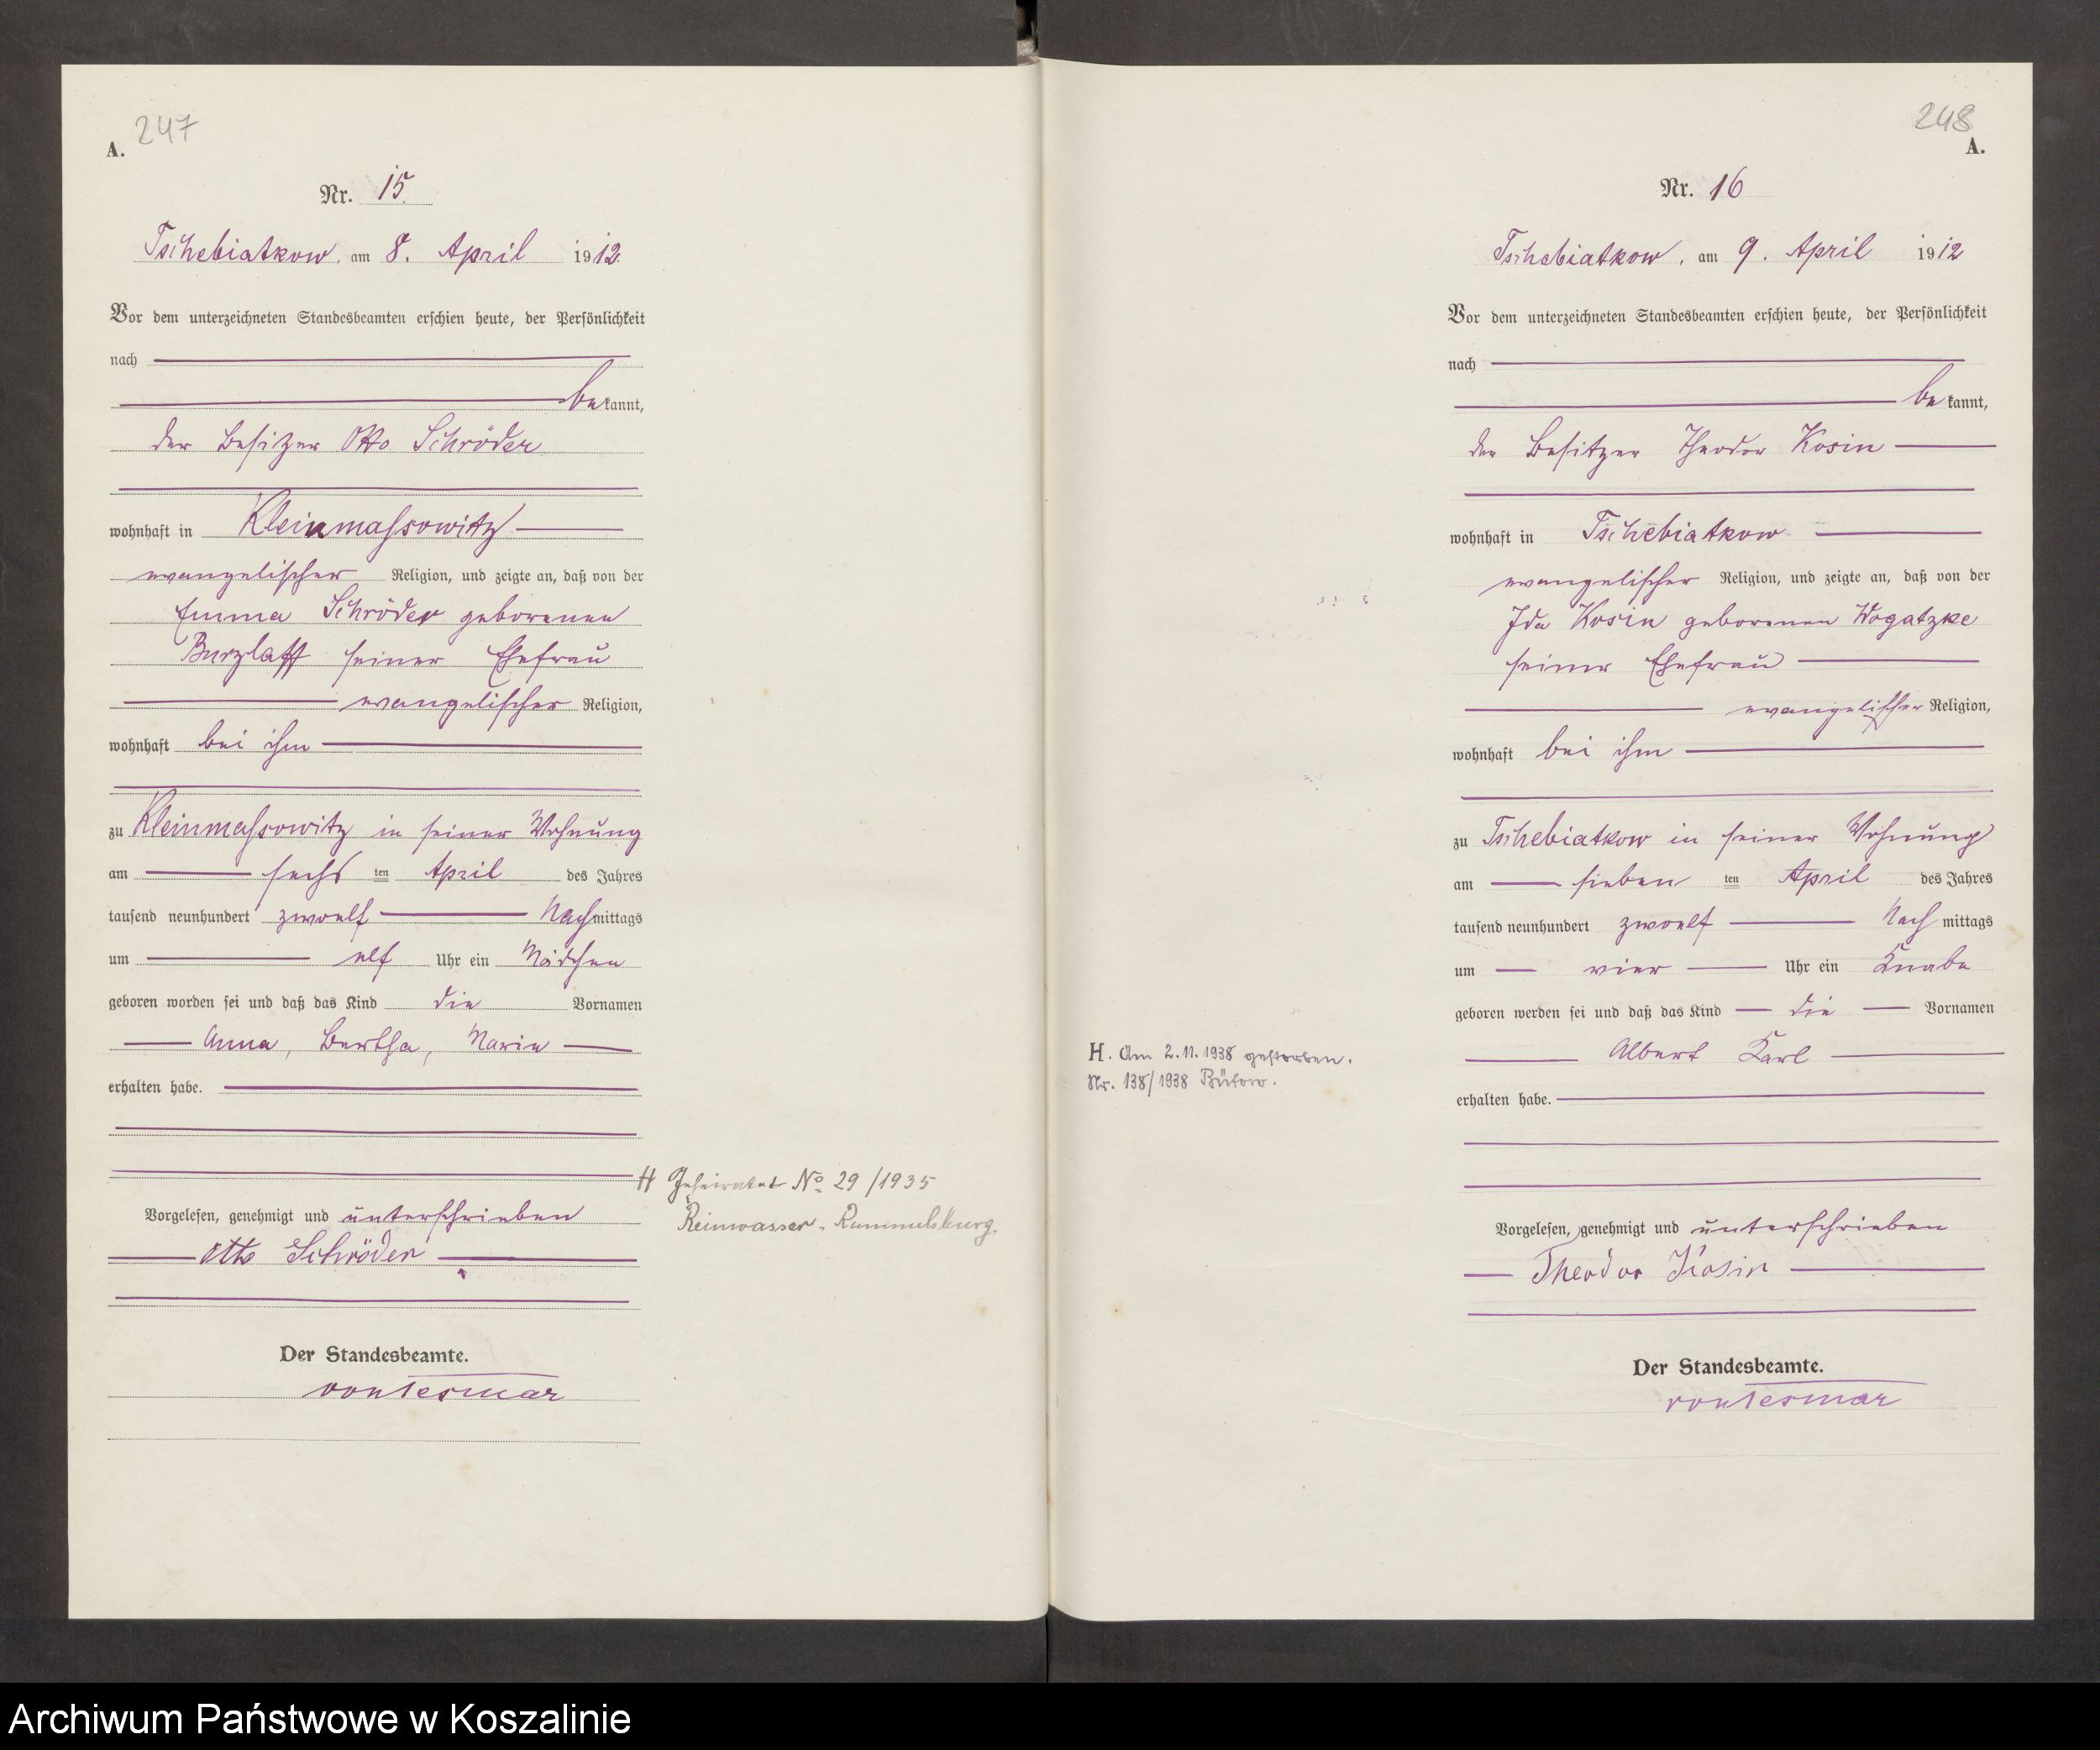 247
A.
Nr. 15.
Tschebiatkow, am 8. April 1912.
Vor dem unterzeichneten Standesbeamten erschien heute, der Persönlichkeit
nach
bekannt,
der Besitzer Otto Schröder
wohnhaft in Kleinmassowitz
evangelischer Religion, und zeigte an, daß von der
Emma Schröder geborenen
Burzlaff seiner Ehefrau
evangelischer Religion,
wohnhaft bei ihm
zu Kleinmassowitz in seiner Wohnung
am sechsten April des Jahres
tausend neunhundert zwoelf Nachmittags
um elf Uhr ein Mädchen
geboren worden sei und daß das Kind die Vornamen
Anna, Bertha, Marie
erhalten habe.
Vorgelesen, genehmigt und unterschrieben
Otto Schröder
Der Standesbeamte.
von Tesmar
H Geheiratet No. 29/1935
Reinwasser, Rummelsburg.
248
A.
Nr. 16
Tschebiatkow, am 9. April 1912
Vor dem unterzeichneten Standesbeamten erschien heute, der Persönlichkeit
nach
bekannt,
der Besitzer Theodor Kosin
wohnhaft in Tschebiatkow
evangelischer Religion, und zeigte an, daß von der
Ida Kosin geborenen Wogatzke
seiner Ehefrau
evangelischer Religion,
wohnhaft bei ihm
zu Tschebiatkow in seiner Wohnung
am siebenten April des Jahres
tausend neunhundert zwoelf Nachmittags
um vier Uhr ein Knabe
geboren werden sei und daß das Kind die Vornamen
Albert Karl
erhalten habe.
H. Am 2.11.1938 gestorben.
Nr. 138/1938 Bütow.
Vorgelesen, genehmigt und unterschrieben
Theodor Kosin
Der Standesbeamte.
von Tesmar
Archiwum Państwowe w Koszalinie